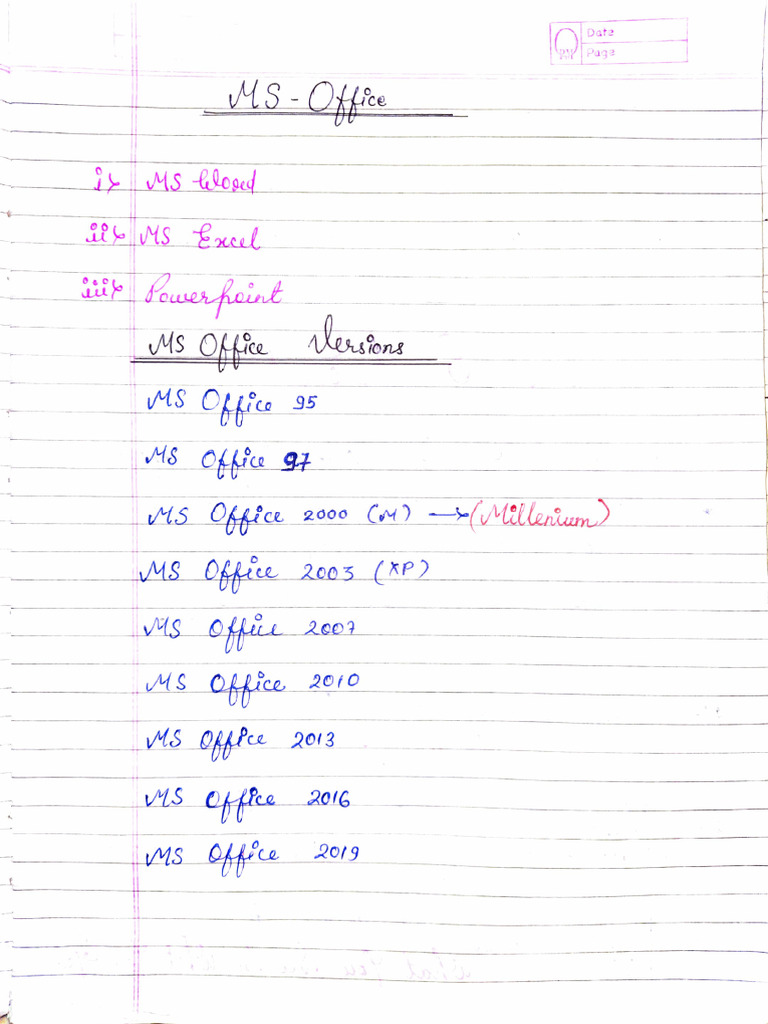 Date
Page
MS - Office
i> MS Word
ii> MS Excel
iii> Powerpoint
MS Office Versions
MS Office 95
MS Office 97
MS Office 2000 (M) → (Millenium)
MS Office 2003 (XP)
MS Office 2007
MS Office 2010
MS Office 2013
MS Office 2016
MS Office 2019